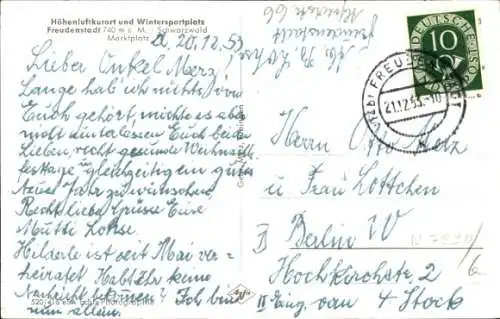 Höhenluftkurort und Wintersportplatz
Freudenstadt 740 m ü. M. Schwarzwald
Marktplatz
20.12.53
Lieber Onkel Merz!
Lange hab ich nichts von
Euch gehört, möchte es aber
nicht unterlassen Euch beiden
Lieben, recht frohe Weihnachts
festtage u. gleichzeitig ein gutes
Neues Jahr zu wünschen.
Recht liebe Grüsse Eure
Mutti
Hilderle ist seit Mai ver-
heiratet Habt Ihr keine
Nachricht bekommen? Ich bin
nun allein.
Abs.
Freudenstadt
DEUTSCHE BUNDESPOST
10
FREUDENSTADT
21.12.53.-10
Herrn Otto Merz
u. Frau Lottchen
Berlin W
Hochkirchstr. 2
II Eing. vorn 4 Stock
Agfa